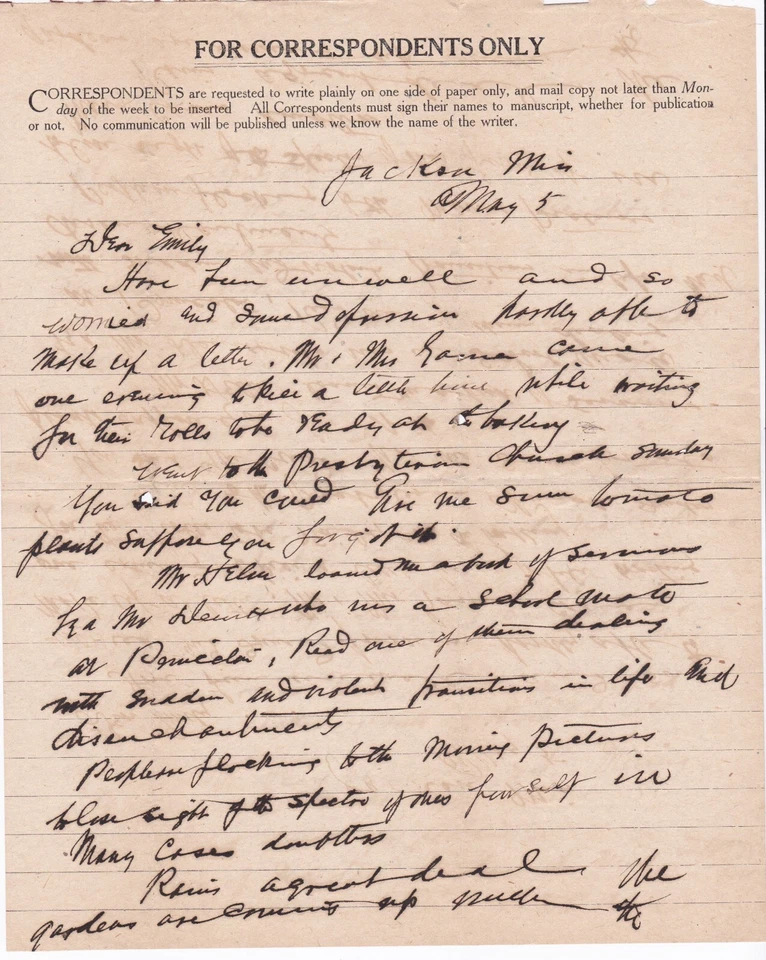 FOR CORRESPONDENTS ONLY
CORRESPONDENTS are requested to write plainly on one side of paper only, and mail copy not later than Mon-
day of the week to be inserted All Correspondents must sign their names to manuscript, whether for publication
or not. No communication will be published unless we know the name of the writer.
Jackson Miss
May 5
Dear Emily
Have been unwell and so
worried and some depression hardly able to
make up a letter. Mr & Mrs came
one evening to kill a little time while waiting
for their rolls to be ready at the bakery
Went to the Presbyterian Church Sunday
You said you could give me some tomato
plants suppose you forgot it.
Mr Helm loaned me a book of sermons
by a Mr who was a school mate
at Princeton, Read one of them dealing
with sudden and violent transitions in life and
disenchantments
People are flocking to the Moving Pictures
to lose sight of the spectre of ones self in
Many cases doubtless
Rains a great deal the
gardens are coming up the